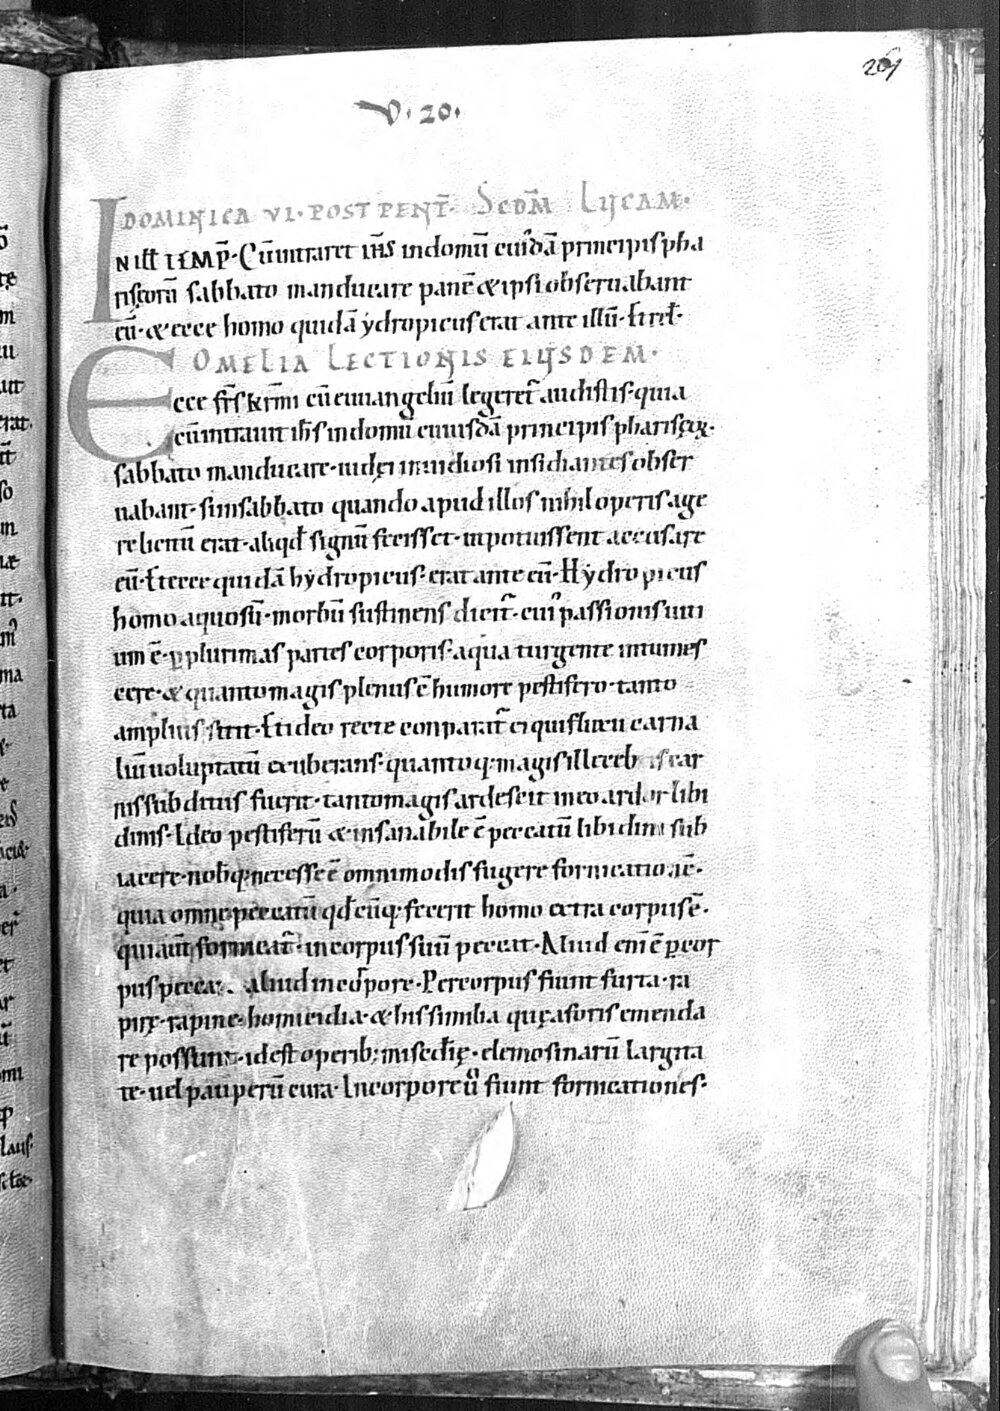 261
V. 20.
DOMINICA VI. POST PENT̄. SCD̄M LUCAM.
IN ill̄ TEMP̄. Cū intraret ih̄s in domū cuiꝰdā principis pha
risęorū sabbato manducare panē & ipsi obseruabant
eū. & ecce homo quidā ydropicus erat ante illū. Et rƚ.
OMELIA LECTIONIS EIUSDEM.
Ecce fr̄s kr̄mi cū euuangeliū legeret̄ audistis. quia
cū intrauit ih̄s in domū cuiusdā principis pharisęoꝝ.
sabbato manducare. iudęi inuidiosi insidiantes obser
uabant. si in sabbato quando apud illos nihil operis age
re licitū erat. aliqd̄ signū fecisset. ut potuissent accusare
eū. Et ecce quidā hydropicus. erat ante eū. Hydropicus
homo aquosū. morbū sustinens dicit̄. cuiꝰ passionis uiti
um ē. ꝑ plurimas partes corporis. aqua turgente intumes
cere. & quanto magis plenus ē humore pestifero. tanto
amplius sitit. Et ideo recte conparat̄ ei qui fluxu carna
liū uoluptatū exuberans. quantoq; magis illecebris car
nis subditus fuerit. tanto magis ardescit in eo ardor libi
dinis. Ideo pestiferū & insanabile ē peccatū libidini sub
iacere. nobisq; necesse ē omnimodis fugere fornicationē.
quia omne peccatū qd̄cūq; fecerit homo extra corpus ē.
qui aut̄ fornicat̄. in corpus suū peccat. Aliud eni ē ꝑ cor
pus pecca. aliud in corpore. Per corpus fiunt furta. ra
pinę. homicidia. & his similia quę a foris emenda
re possunt. id est operib; misc̄dię. elemosinarū largita
te. uel pauperū cura. In corpore ū fiunt fornicationes.